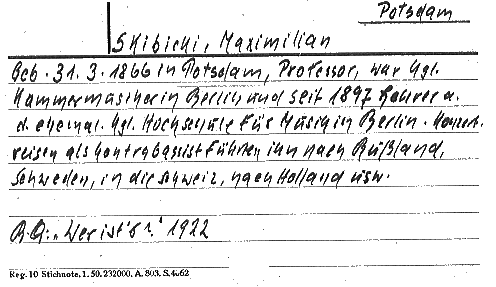 Potsdam
Skibicki, Maximilian
Geb. 31. 3. 1866 in Potsdam, Professor, war Kgl.
Kammermusiker in Berlin und seit 1897 Lehrer a.
d. ehemal. Kgl. Hochschule für Musik in Berlin. Konzert-
reisen als Kontrabassist führten ihn nach Rußland,
Schweden, in die Schweiz, nach Holland usw.
"Wer ist's?" 1922
Reg. 10 Stichnote. 1. 50. 232000. A. 803. S. 4662